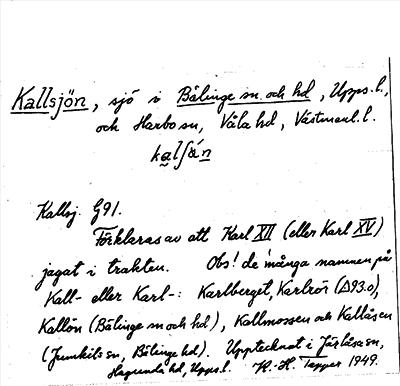 Kallsjön, sjö i Bälinge sn. och hd, Upps. l.,
och Harbo sn, Våla hd, Västmanl. l.
kalʃön
Kallsj. G91.
Förklaras av att Karl XII (eller Karl XV)
jagat i trakten. Obs! de många namnen på
Kall- eller Karl-: Karlberget, Karlrör (Δ93.0),
Kallön (Bälinge sn och hd), Kallmossen och Kallåsen
(Jumkils sn, Bälinge hd). Upptecknat i Järlåsa sn,
Hagunda hd, Upps. l. K.-H. Tapper 1949.